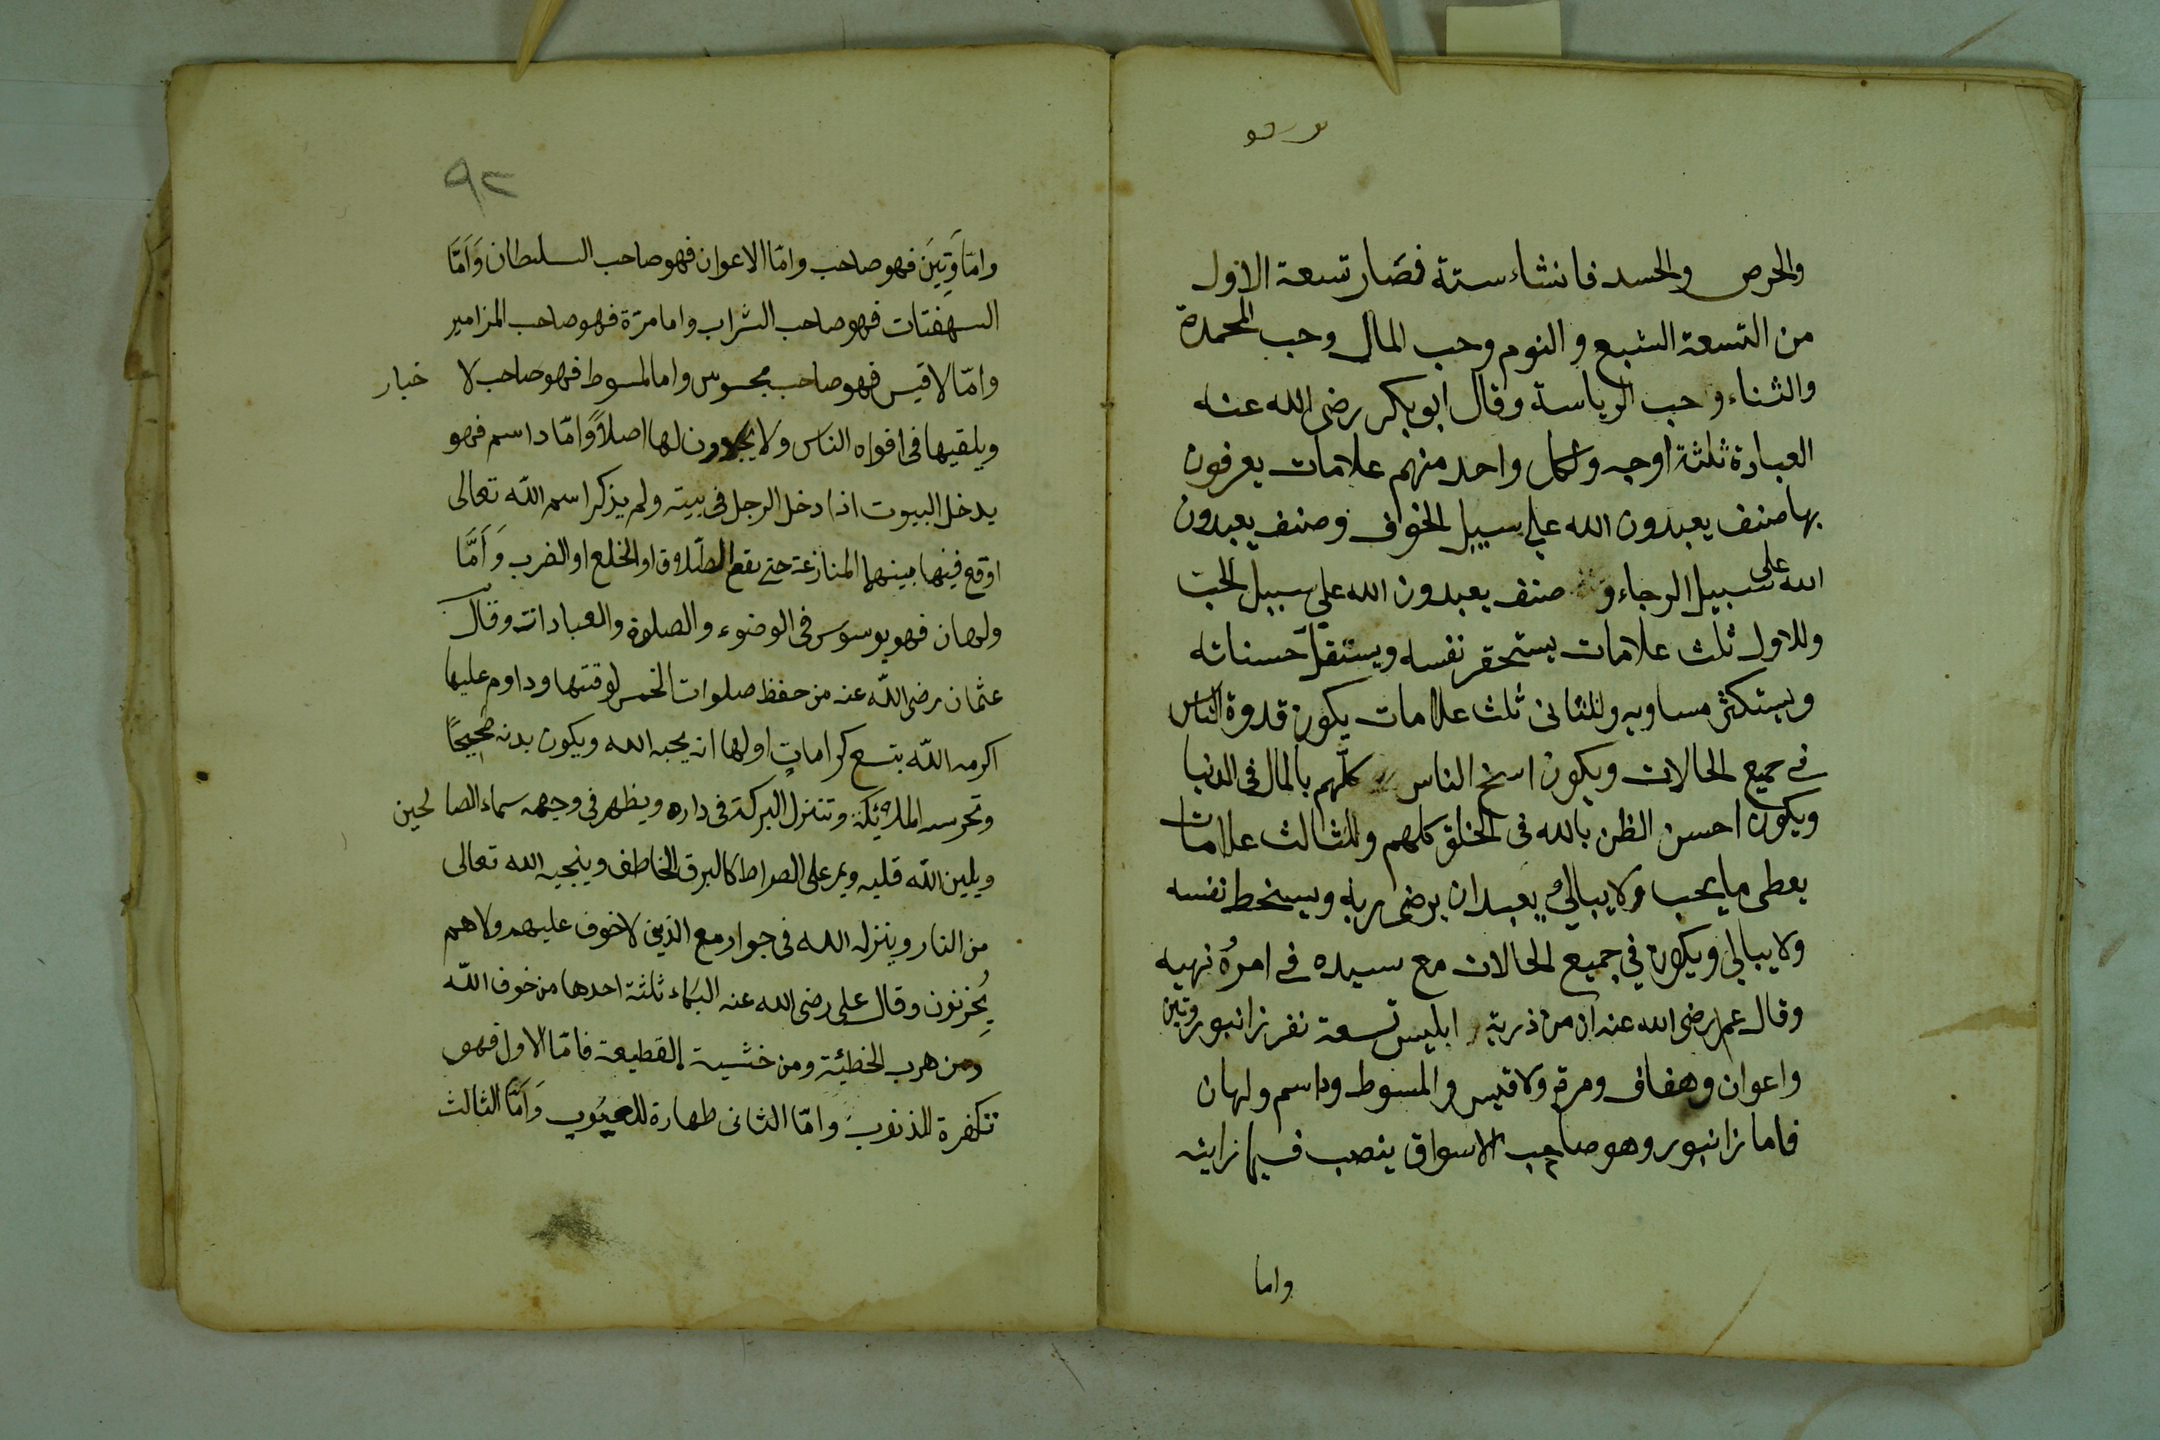 والحرص والحسد فانشاء ستة فصَار تسعة الاول
من التسعة الشبع والنوم وحب المال وحب المحمدة
والثناء وحب الرياسة وقال ابو بكر رضى الله عنه
العبادة ثلثة اوجه ولكل واحد منهم علامات يعرفون
بها صنف يعبدون الله على سبيل الخوف وصنف يعبدون
الله على سبيل الرجاء و صنف يعبدون الله على سبيل الحب
وللاول ثلث علامات يستحقر نفسه ويستقل حسناته
ويستكثر مساويه وللثانى ثلث علامات يكون قدوة الناس
في جميع الحالات ويكون اسخ الناس كلهم بالمال فى الدنيا
ويكون احسن الظن بالله فى الخلق كلهم وللثالث علامات
يعطى ما يحب ولا يبالى بعبد ان يرضى ربه ويسخط نفسه
ولا يبالي ويكون في جميع الحالات مع سيده في امره نهيه
وقال عمر رضى الله عنه ان من ذرية ابليس تسعة نفر زانبور وتين
واعوان وهفاف ومرة ولاقيس والمسوط وداسم ولهان
فاما زانبور وهو صاحب الاسواق ينصب فيها زايته
واما
٩٢
وامّا وَتِينَ فهو صاحب وامّا الاعوان فهو صاحب السلطان وَاَمَّا
السهفتات فهو صاحب الشراب واما مرّة فهو صاحب المزامير
وامّا لاقيس فهو صاحب مجوس واما لمسوط فهو صاحب لا خبار
ويلقيها فى افواه الناس ولا يجدون لها اصلاً وامّا داسم فهو
يدخل البيوت اذا دخل الرجل فى بيته ولم يذكر اسم الله تعالى
اوقع فيها بينهما المنازعة حتى يقع الطلاق او الخلع او الضرب وَاَمَّا
ولهان فهو يوسوس فى الوضوء والصلوة والعبادات وقال
عثمان رضى الله عنه من حفظ صلوات الخمس لوقتها وداوم عليها
اكرمه الله بتسع كرامات اولها ان يحبه الله ويكون بدنه صحيحًا
وتحرسه الملائكة وتنزل البركة فى داره ويظهر فى وجهه سماء الصا لحين
ويلين الله قلبه ويمر على الصراط كالبرق الخاطف وينجيه الله تعالى
من النار وينزله الله فى جوار مع الذين لا خوف عليهم ولاهم
يُحزنون وقال على رضى الله عنه البكاء ثلثة احدها من خوف الله
ومن هرب الخطيئة ومن خشية القطيعة فامّا الاول فهو
تكفرة للذنوب وامّا الثانى طهارة للعيُوب وَاَمَّا الثالث